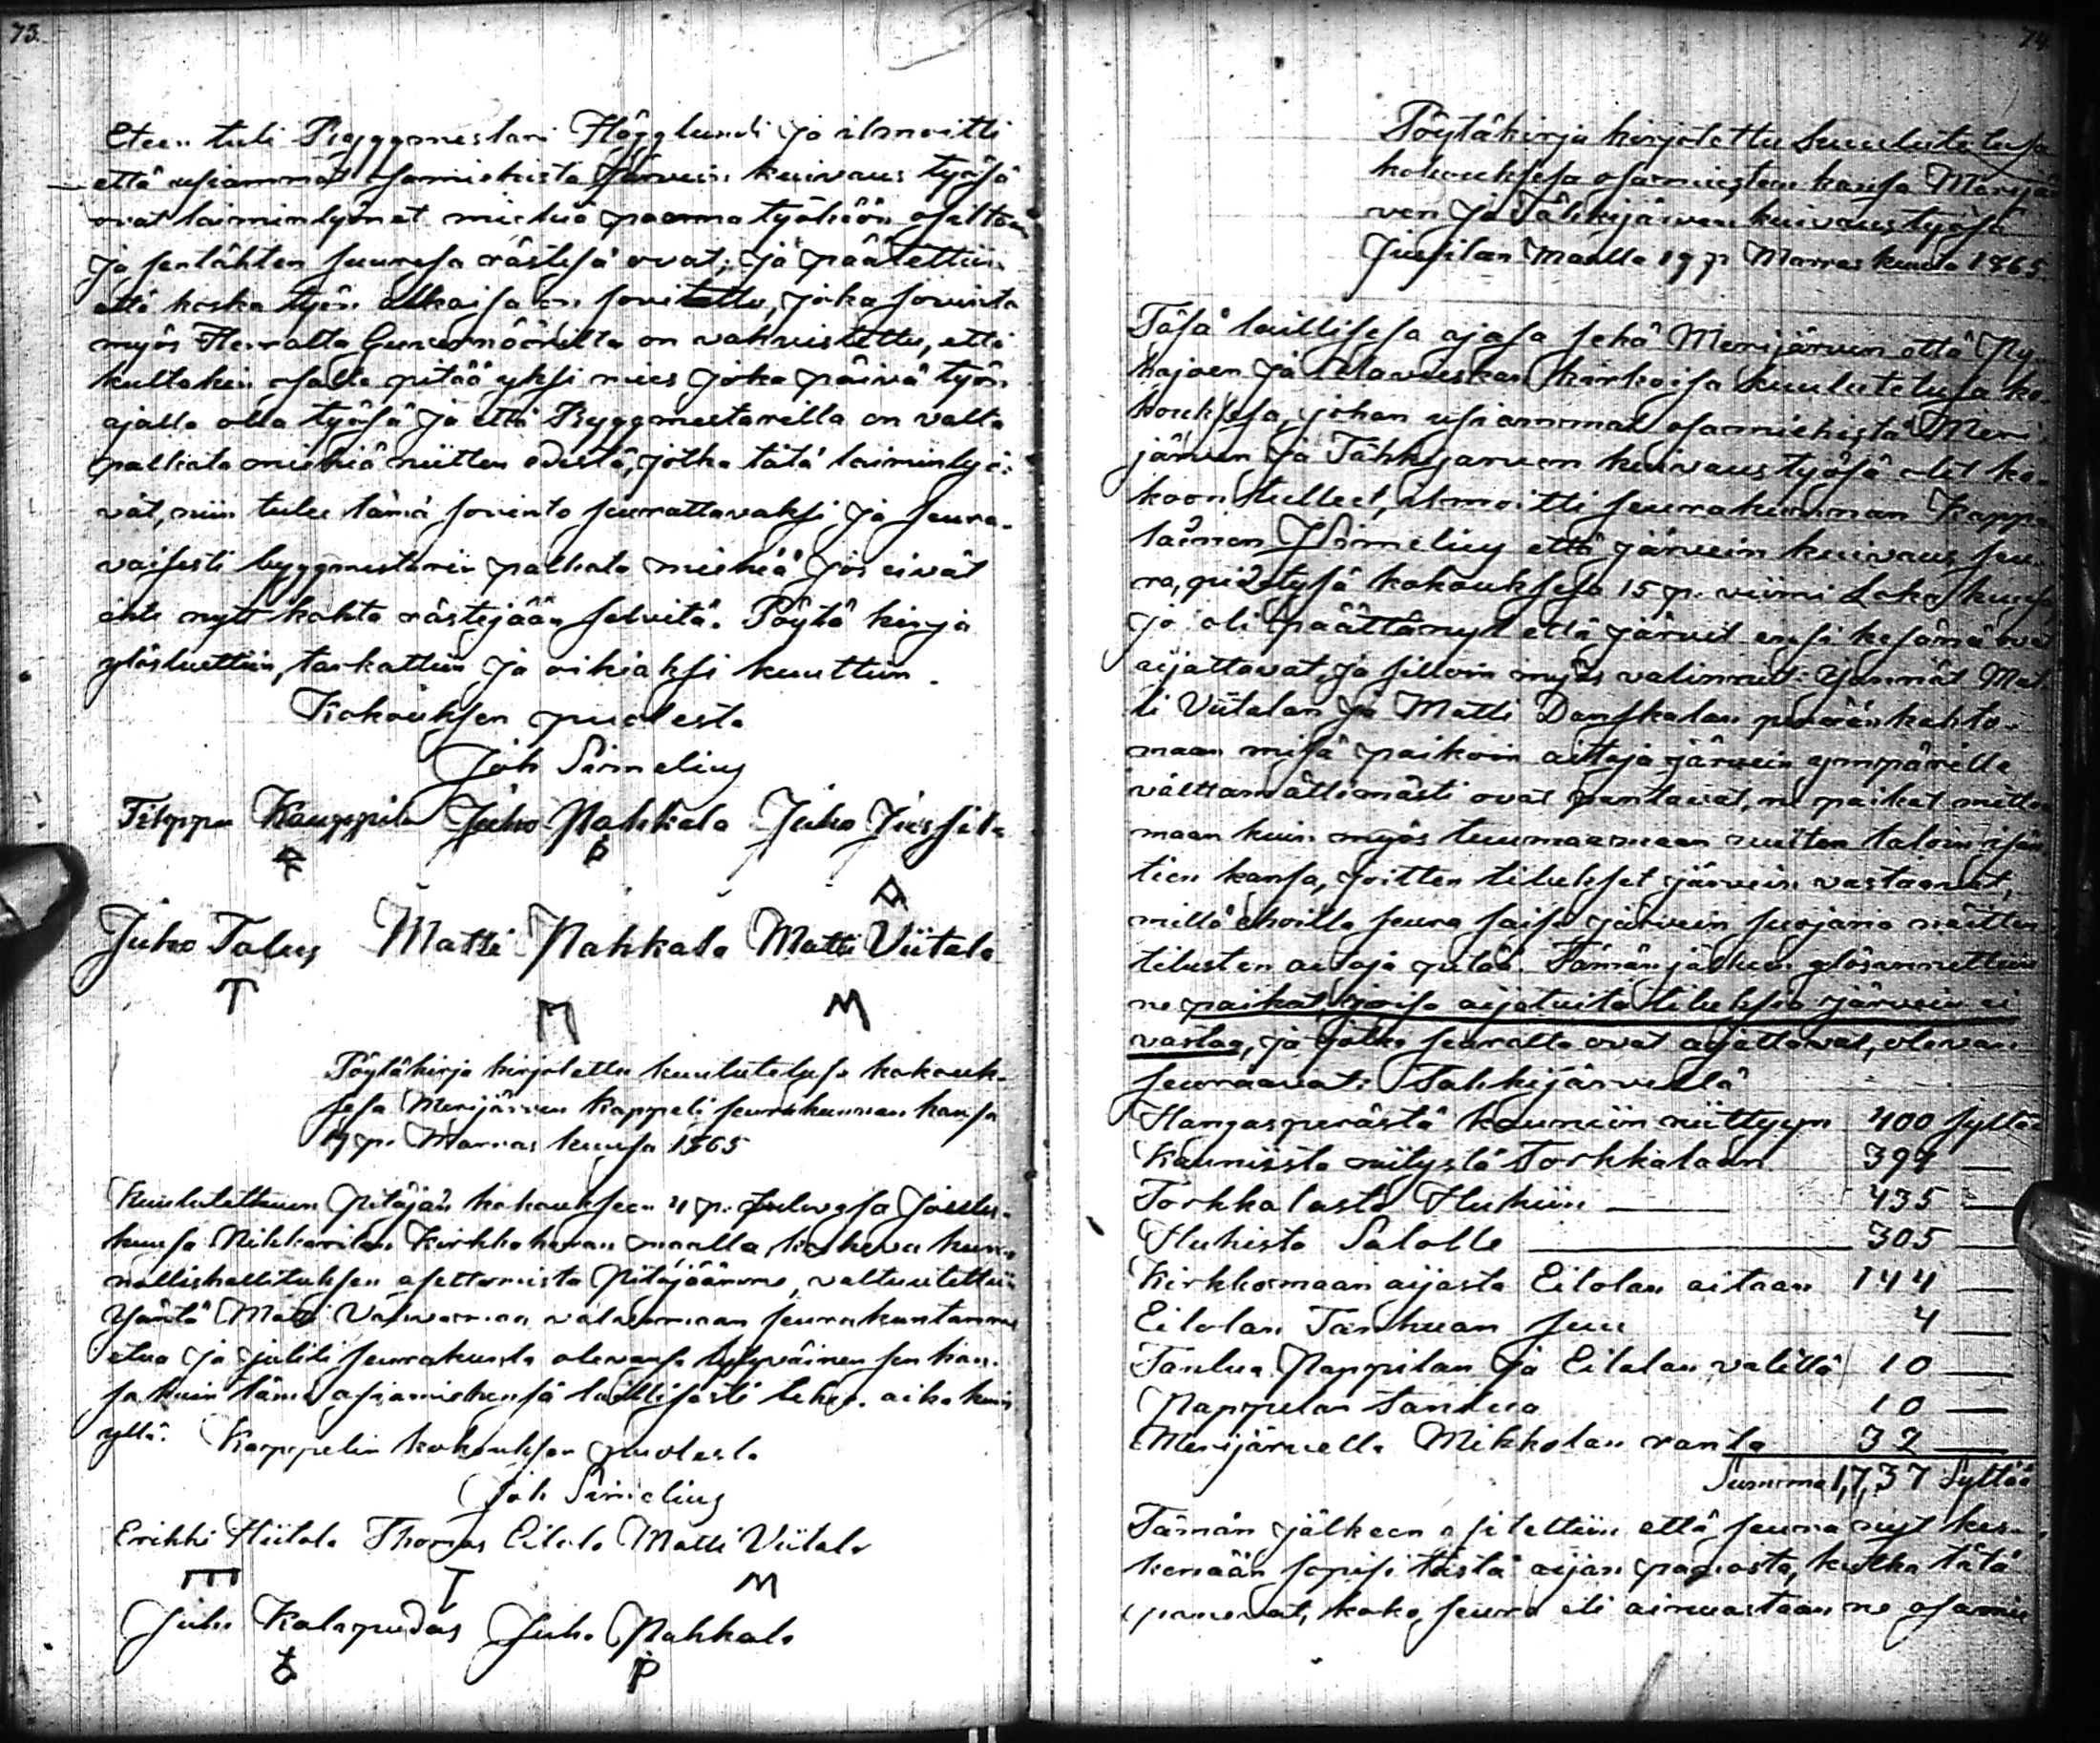 73.
Eteen tuli Byggmestari Hägglundi ja ilmoitti
että usiammat osamiehista Järvein kuivaus työsä
ovat laiminlyönet miehiä panna työhöön osiltans
ja sentähten suuresa rästisä ovat; ja päätettiin
että koska työn alkaisa on sovitettu, joka sovinto
myös Herralta Guvernöörilta on vahvistettu, että
kultakin osalta pitää yksi mies joka päivä työn
ajalla olla työsä ja että Byggmestarilla on valta
palkata miehiä niitten edestä, jotka tätä laiminlyö-
vät, niin tulee tämä sovinto seurattavaksi ja seura-
vaisesti byggmestarin palkata miehiä jos eivät
ehk nytt kohta rästejään selvitä. Pöytä kirja
ylösluettiin, tarkattiin ja oikiaksi kuuttiin.
Kokouksen puolesta
Joh Simelius
Filppu Kauppila Juho Pahkala Juho Juusila
Juho Talus Matti Pahkala Matti Viitala
T M M
Pöytäkirja kirjotettu kuulutetusa kokouk-
sesa Merijärven kappeli seurakunnan kansa
19 p. Marras kuusa 1865
Kuulutettuun Pitäjän kokoukseen 4 p. tulevasa Joulu-
kuusa Nikkarilan Kirkkoherran maalla, koskeva kun-
nallishallituksen asettamista Pitäjäämme, valtuutettiin
Isäntä Matti valvomaan seurakuntamme
etua ja jutili seurakunta olevansa tytyväinen sen kans-
sa kuin tämä asiamiehensä laillisesti tekee. aika kuin
yllä. Kappelin kokouksen puolesta
Joh Simelius
Erikki Hiitola Thomas Eilola Matti Viitala
T M
Juho Kalapudas Juho Pahkala
74
Pöytäkirja kirjotettu kuulutetusa
kokouksesa osamiesten kansa Merijär
ven ja Tähkijärven kuivaustyösä
Juusilan Maalla 19 p Marras kuuta 1865.
Täsä laillisesa ajasa sekä Merijärven että Py-
häjoen ja Alavieskan kirkoisa kuulutetusa ko-
kouksesa, johon usiammat osamiehistä Meri-
järven ja Tähkijärven kuivaus työsä olit ko-
koon tulleet, ilmoitti seurakunnan Kappa
lainen Simelius että järvein kuivaus seu-
ra, pidetysä kokouksesa 15 p. viimi Loka kuusa
jo oli päättänyt että järvet ensi kesänä ovat
aijattavat, ja silloin myös valinnut: Isännät Mat-
ti Viitalan ja Matti Danskalan perään kahto-
maan misä paikoin aitoja järvein ympärille
välttamättömästi ovat pantavat, ne paikat mittaa
maan kuin myös tuumaamaan niitten taloin isän
tien kansa, joitten tilukset järvein vastaavat,
millä ehoilla seura saisi järvein suojana näitten
tilusten aitoja pitää. Tämän jälkeen ylösannettiin
ne paikat, joisa aijatuita tiluksia järvein ei
vastaa, ja jotka seuralta ovat aijattavat, olevan
seuraavat: Tähkijärvellä
Hangasperästä kauniin niittyyn 400 syltää
Kauniista niitystä Torkkalaan 397 —
Torkkalasta Huhiin — 435 —
Huhista Salolle — 305 —
Kirkkomaan aijasta Eilolan aitaan 144 —
Eilolan Tanhuan suu 4 —
Tanhua Pappilan ja Eilolan valillä 10 —
Pappilan tanhua 10 —
Merijärvellä Mikkolan ranta 32 —
Summa 1,737 Syltää
Tämän jälkeen esitettiin että seura nyt kes-
kenään sopisi tästä aijan panosta, kutka tätä
panevat, koko seura eli ainoastaan ne osamie